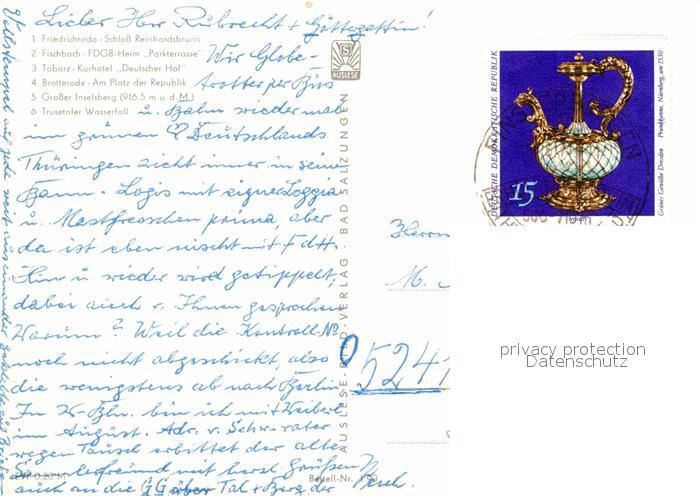 Lieber Herr Rubrecht + Göttergattin!
1 Friedrichroda - Schloß Reinhardsbrunn
2 Fischbach - FDGB-Heim „Parkterrasse"
3 Tabarz - Kurhotel „Deutscher Hof"
4 Brotterode - Am Platz der Republik
5 Großer Inselsberg (916,5 m ü. d. M.)
6 Trusetaler Wasserfall
Wir Globe-
trotter per Bus
u. Bahn wieder mal
im grünen Deutschlands
Thüringen zieht immer in seine
Bann. Logis mit eigner Loggia
u. prima, aber
da ist eben nischt mit F d H.
Hin u. wieder wird getippelt,
dabei auch v. Ihnen gesprochen
Warum? Weil die Kontroll-No
noch nicht abgeschickt, also
die wenigstens ab nach Berlin
In bin ich mit
im August. Adr. v.
wegen Tausch erbittet der alte
mit herzl. Grüßen
auch an die GG über Tal + Berg der
AUSLESE
AUSLESE-BILD-VERLAG BAD SALZUNGEN
EVP 0,20 M
Bestell-Nr.
Herrn
M.
0524
DEUTSCHE DEMOKRATISCHE REPUBLIK
15
Grünes Gewölbe Dresden Prunkkanne, Nürnberg, um 1530
privacy protection
Datenschutz